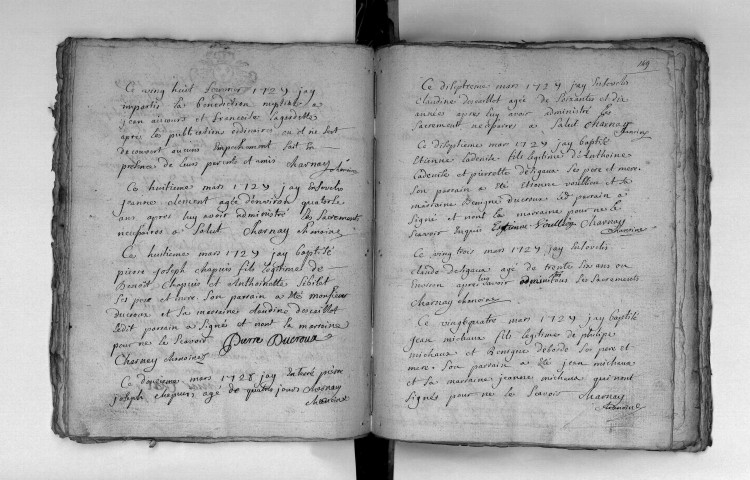 Ce ving huit fevrier 1729 jay
impartis la benediction nuptiale a
jean et francoise
apres les publications ordinaires ou il ne sest
decouvert aucuns empechement fait en
presence de leurs parents et amis Charnay
chanoine
Ce huitieme mars 1729 jay ensevelis
jeanne clement agée denviron quatorze
ans apres luy avoir administré les Sacrements
necessaires a Salut Charnay chanoine
Ce huitieme mars 1729 jay baptisé
pierre joseph Chapuis fils legitimes de
Benoit Chapuis et Anthoinette Sibilat
Ses pere et mere Son parrain a eté monsieur
ducroux et Sa marraine claudine desraillot
ledit parrain a Signé et nont la marraine
pour ne le Scavoir Pierre Ducroux
Charnay chanoine
Ce douzieme mars 1729 jay enterré pierre
joseph chapuis agé de quatre jours Charnay
chanoine
169
Ce dixseptieme mars 1729 jay Ensevelis
claudine agée de Soixantes et dix
années apres luy avoir administré les
Sacrement necessaires a Salut Charnay
chanoine
Ce dixseptieme mars 1729 jay baptisé
Etienne Ladevite fils legitime d'Anthoine
Ladevite et pierrette deligaux Ses pere et mere.
Son parrain a eté etienne et Sa
marraine Benigne ducroux led parrain a
Signé et nont la marraine pour ne le
Scavoir Enquis Etienne Charnay
chanoine
Ce ving trois mars 1729 jay Ensevelis
claude deligaux agé de trente Six ans ou
Environ apres luy avoir administrés les Sacrements
Charnay chanoine
Ce vingtquatre mars 1729 jay baptisé
jean michaux fils legitime de philipe
michaux et Benigne debordo Ses pere et
mere. Son parrain a eté jean michaux
et Sa marraine jeanne michaux qui nont
Signés pour ne le Scavoir Charnay
chanoine